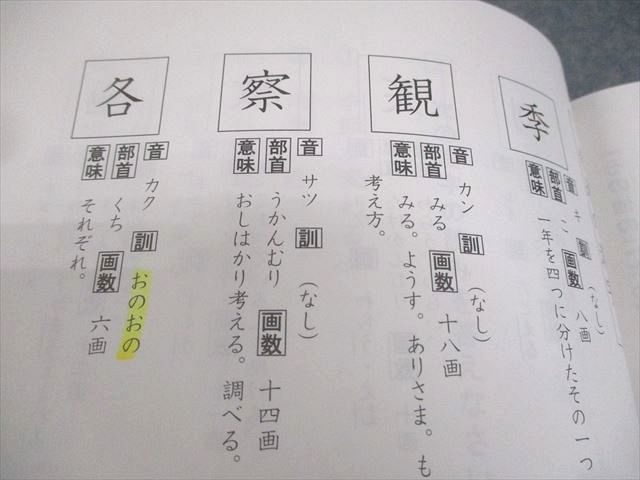 季
音 キ 訓 (なし)
部首 こ 画数 八画
意味 一年を四つに分けたその一つ
観
音 カン 訓 (なし)
部首 みる 画数 十八画
意味 みる。ようす。ありさま。も
考え方。
察
音 サツ 訓 (なし)
部首 うかんむり 画数 十四画
意味 おしはかり考える。調べる。
各
音 カク 訓 おのおの
部首 くち 画数 六画
意味 それぞれ。